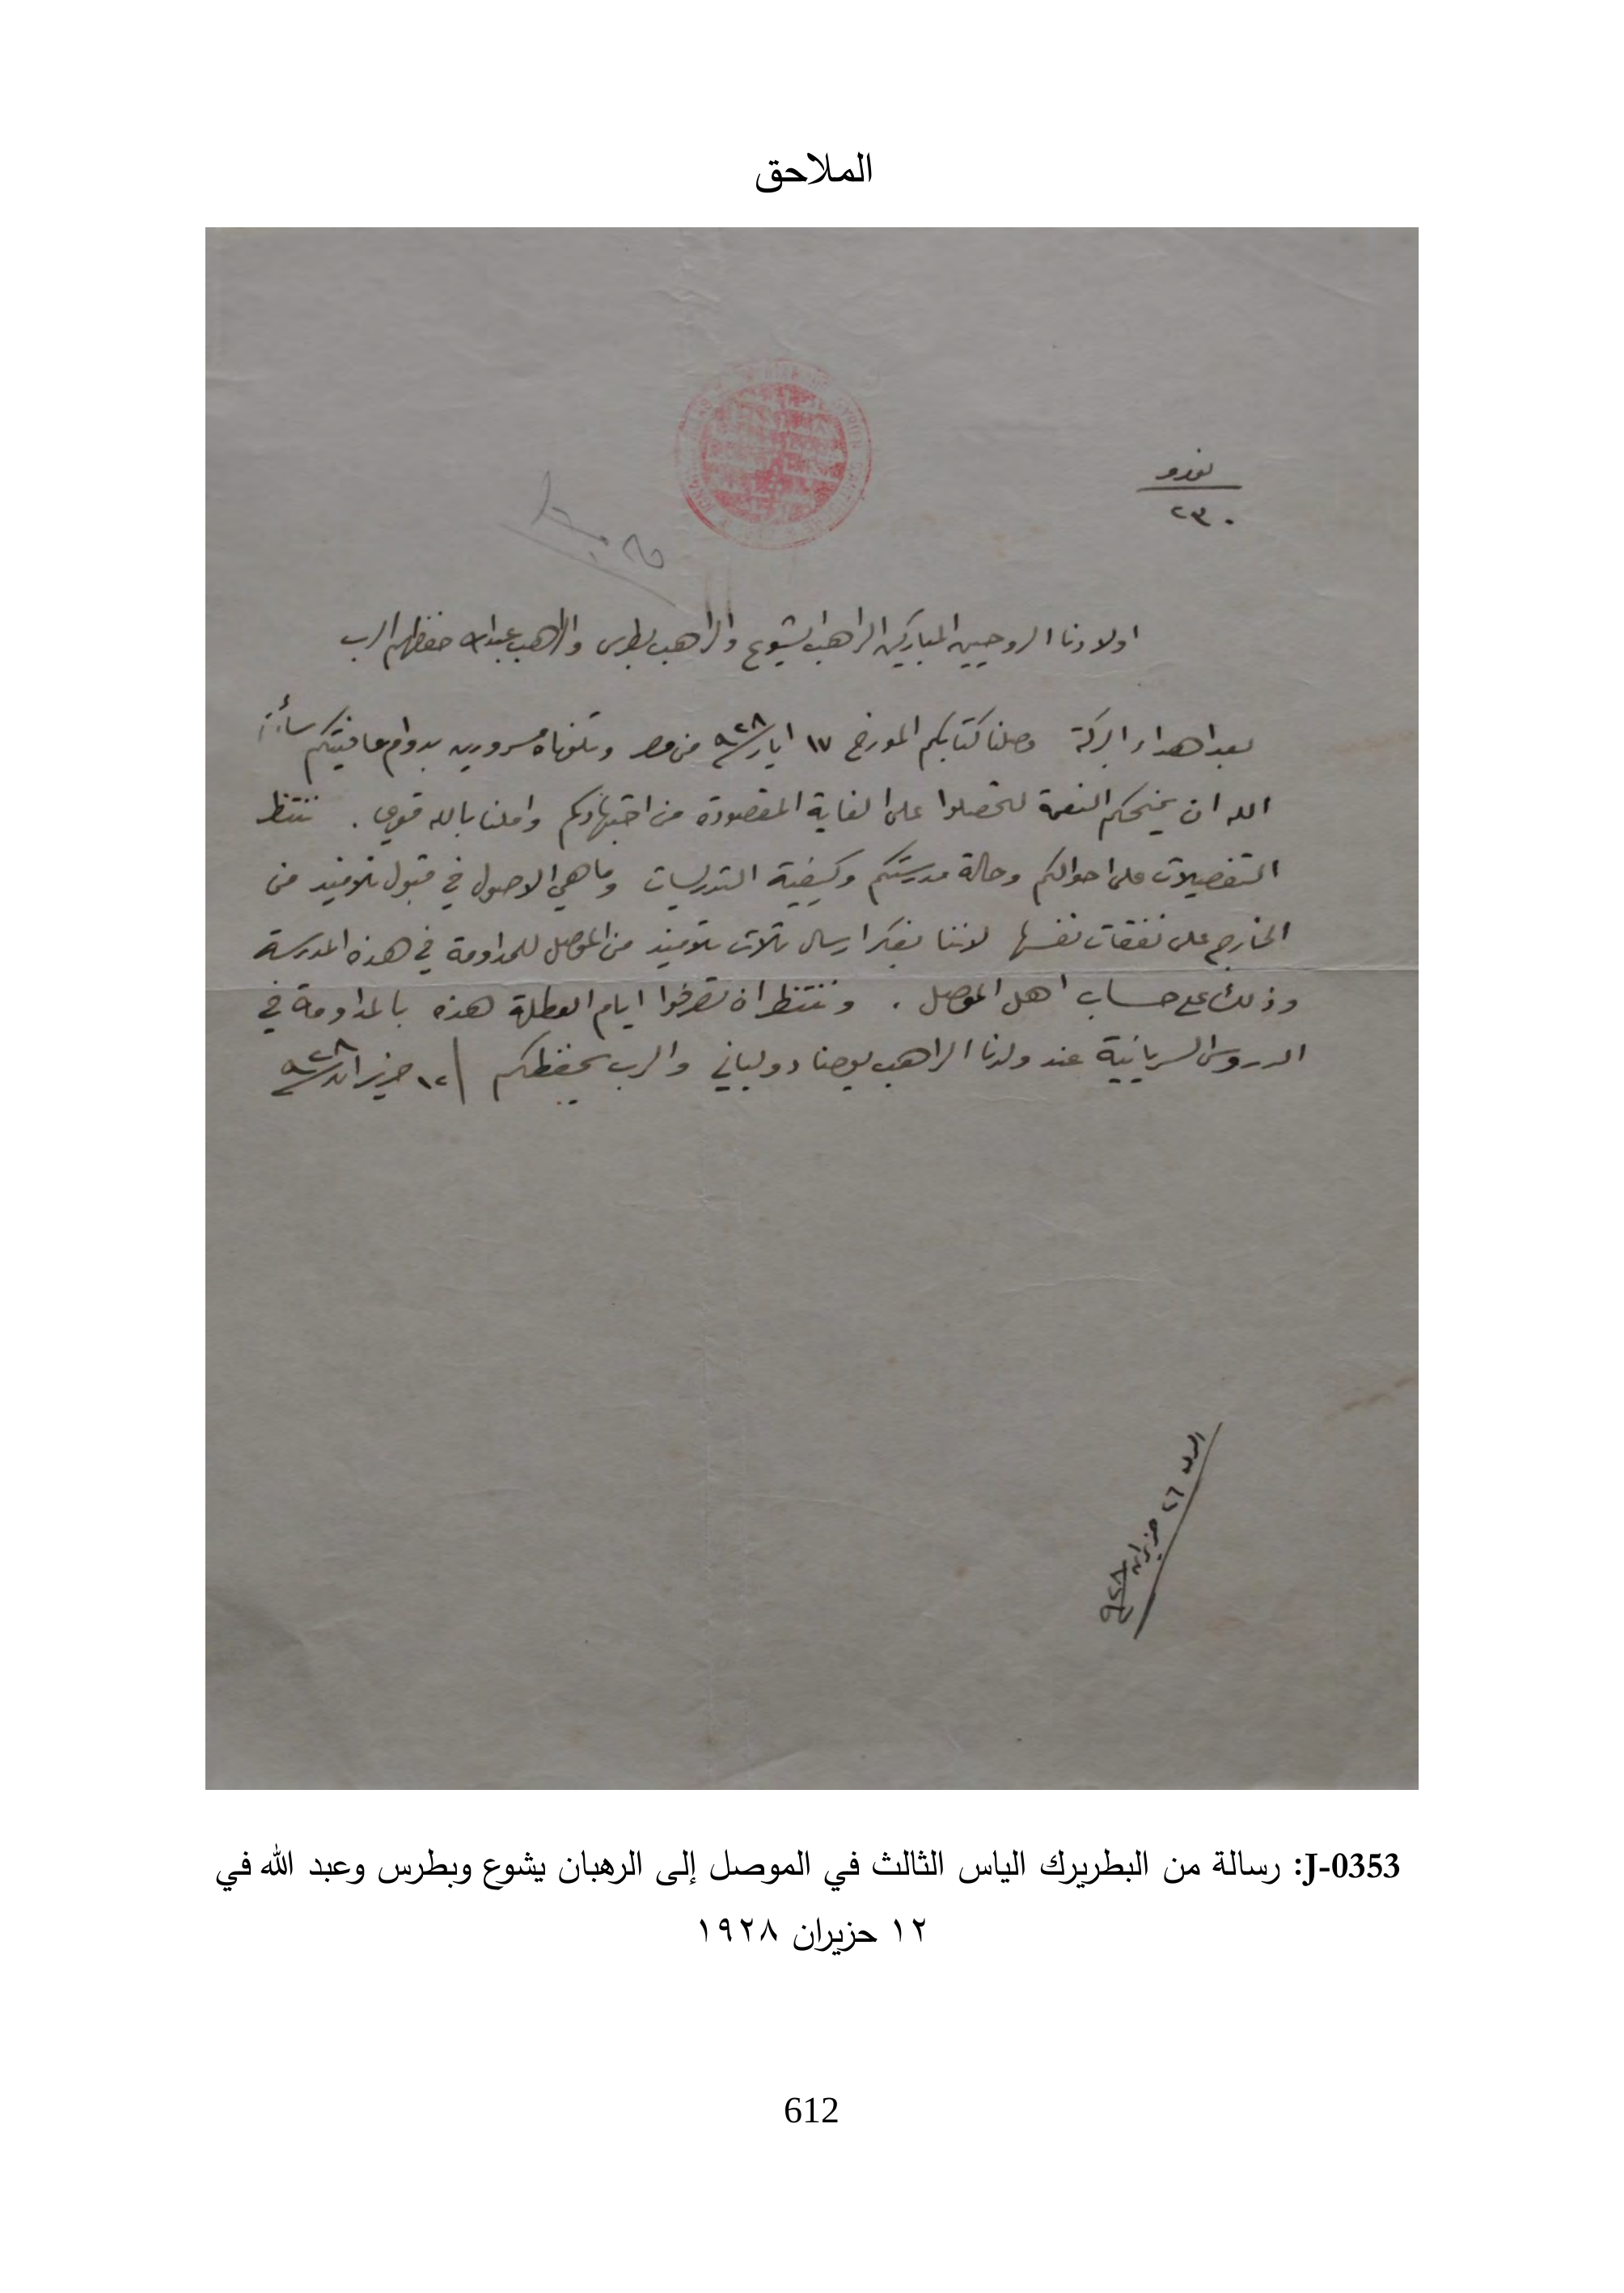 الملاحق
نومرو
٢٣٠
اولادنا الروحيين المباركين الراهب يشوع والراهب بطرس والراهب عبدالله حفظهم الرب
بعد اهداء البركة وصلنا كتابكم المورخ ١٧ ايار ٩٢٨ من مصر وتلوناه مسرورين بدوام عافيتكم سائلين
الله ان يمنحكم النعمة لتحصلوا على الغاية المقصودة من اجتهادكم واملنا بالله قوي . ننتظر
التفصيلات على احوالكم وحالة مدرستكم وكيفية التدريسات وما هي الاصول في قبول تلاميذ من
الخارج على نفقات نفسها لاننا نفكر ارسال ثلاث تلاميذ من الموصل للمداومة في هذه المدرسة
وذلك على حساب اهل الموصل . وننتظر ان تصرفوا ايام العطلة هذه بالمداومة في
الدروس السريانية عند ولدنا الراهب يوحنا دولباني والرب يحفظكم ١٢ حزيران ٩٢٨
٢٦ حزيران ٩٢٨
J-0353: رسالة من البطريرك الياس الثالث في الموصل إلى الرهبان يشوع وبطرس وعبد الله في
١٢ حزيران ١٩٢٨
612